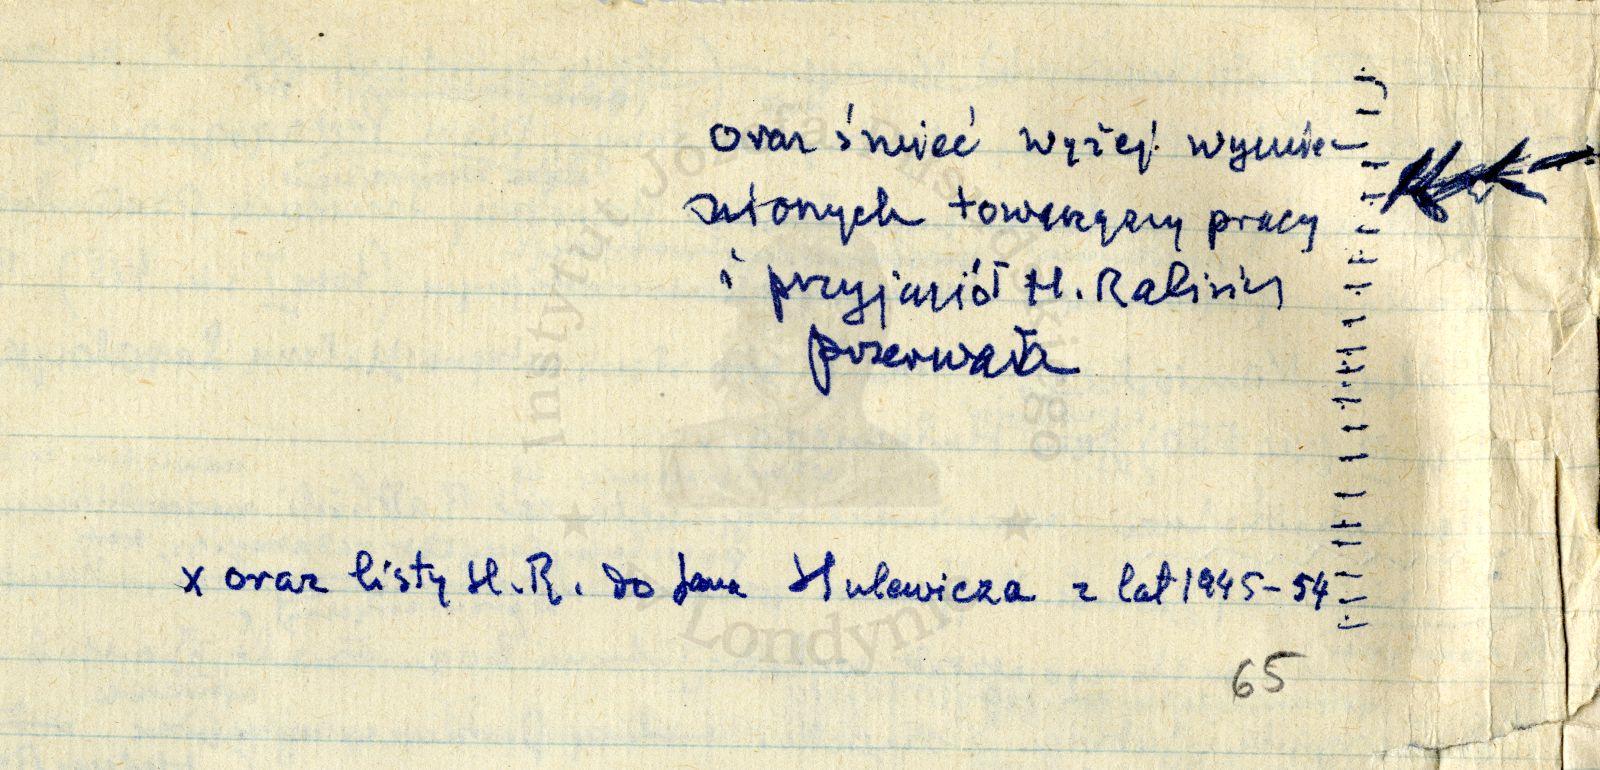 oraz śmierć wyżej wymie-
nionych towarzyszy pracy
i przyjaciół H. Rabisia
przerwała
x oraz listy H.R. do Jana Hulewicza z lat 1945-54
65
Instytut Józefa Piłsudskiego
w Londynie